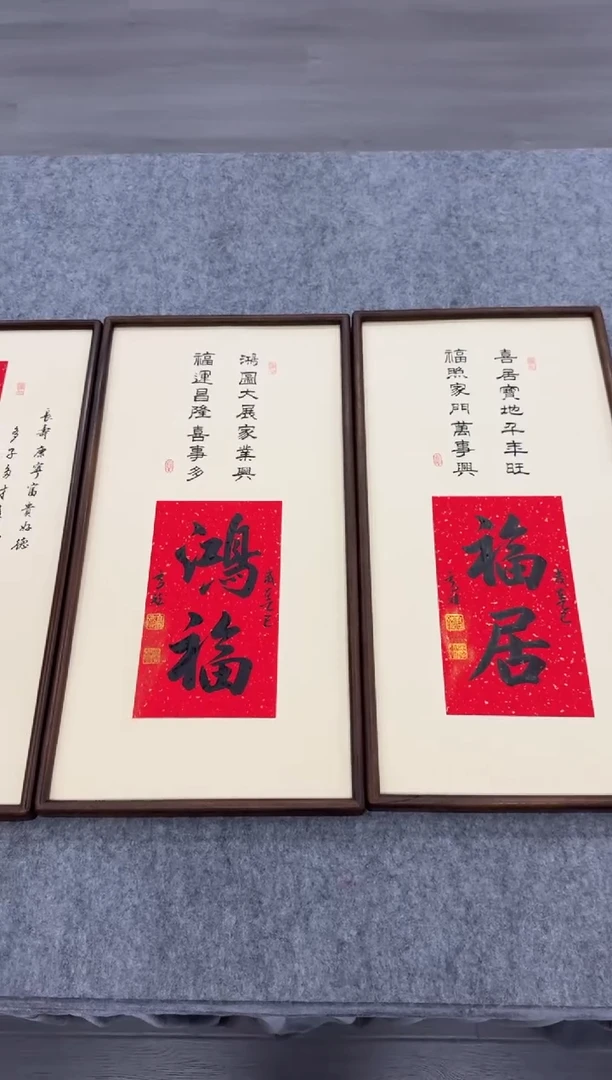 喜居寶地千年旺
福照家門萬事興
福居
鴻圖大展家業興
福運昌隆喜事多
鴻福
長壽康寧富貴好德
多子多才